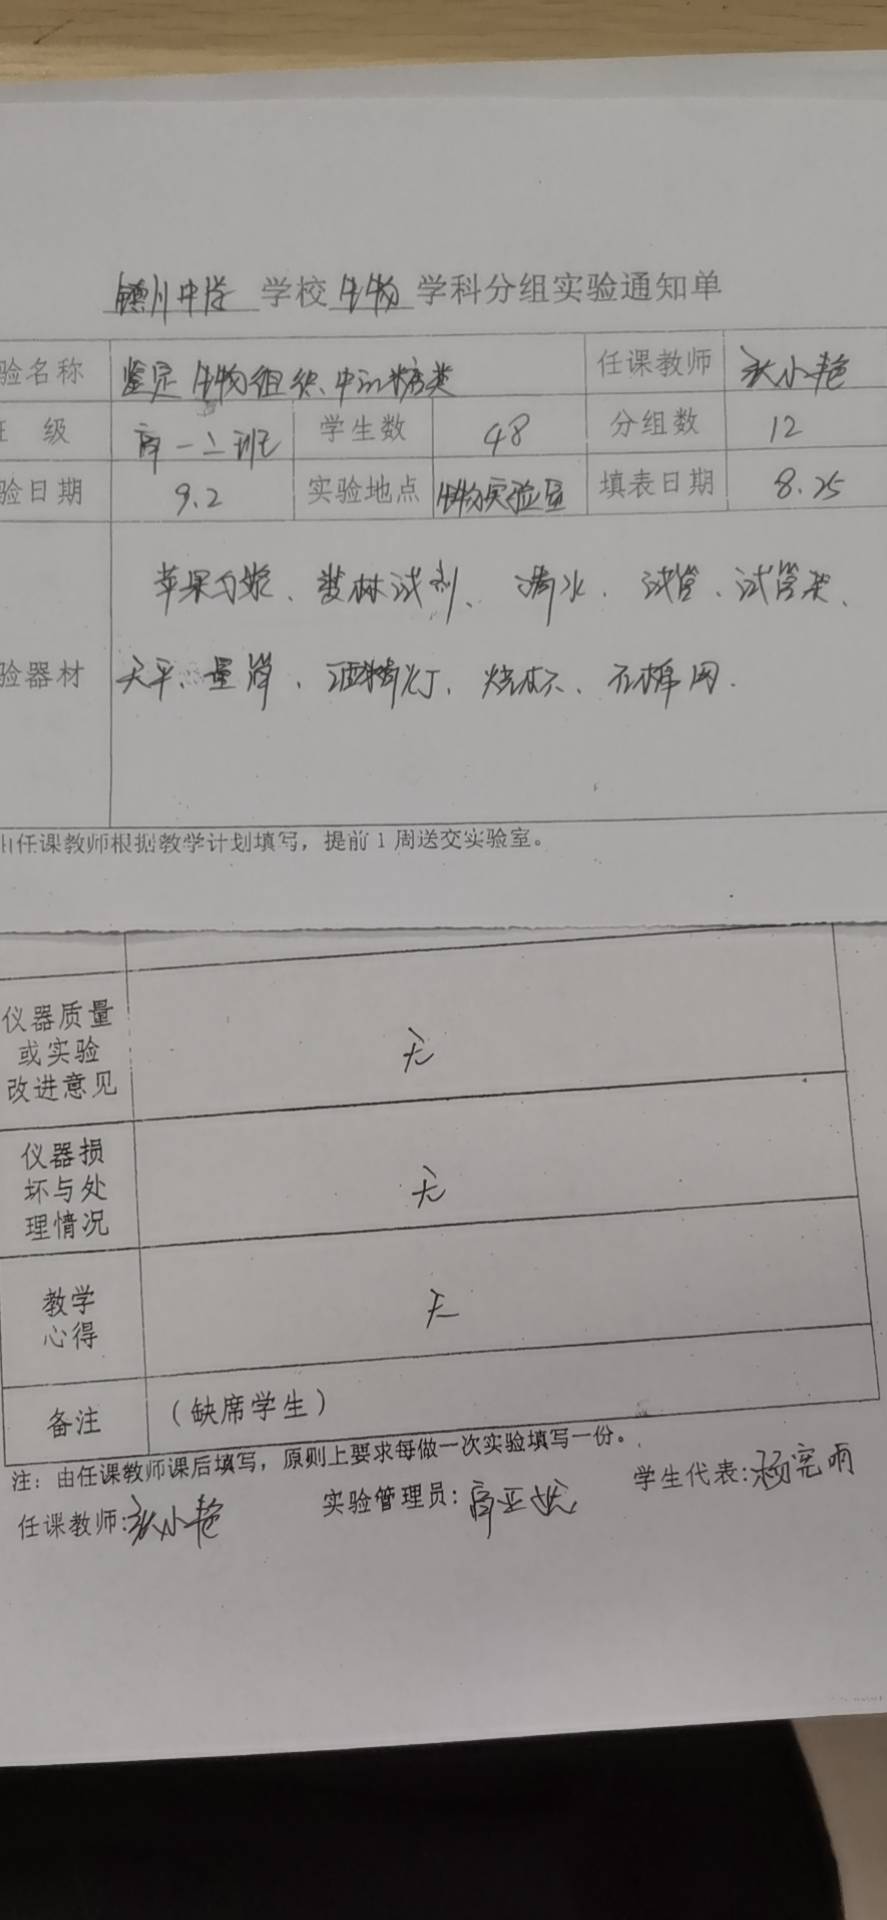 镇川中学 学校 生物 学科分组实验通知单
验名称 鉴定生物组织中的糖类 任课教师 张小艳
级 高一2班 学生数 48 分组数 12
验日期 9.2 实验地点 生物实验室 填表日期 8.25
苹果匀浆、斐林试剂、清水、试管、试管夹、
验器材 天平、量筒、酒精灯、烧杯、石棉网.
由任课教师根据教学计划填写，提前1周送交实验室。
仪器质量
或实验 无
改进意见
仪器损
坏与处 无
理情况
教学 无
心得
备注 （缺席学生）
注：由任课教师课后填写，原则上要求每做一次实验填写一份。
任课教师:张小艳 实验管理员:高亚 学生代表:杨宪